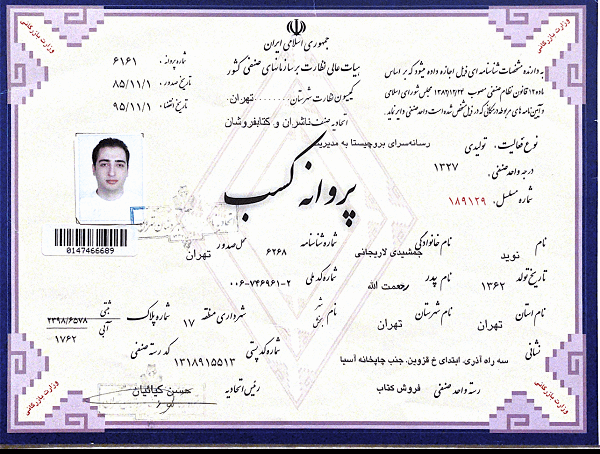 جمهوری اسلامی ایران
هیات عالی نظارت بر سازمانهای صنفی کشور
کمیسیون نظارت شهرستان ........ تهران
اتحادیه صنف ناشران و کتابفروشان
شماره پروانه : ۶۱۶۱
تاریخ صدور : ۸۵/۱۱/۱
تاریخ انقضاء : ۹۵/۱۱/۱
به دارنده مشخصات شناسنامه ای ذیل اجازه داده میشود که بر اساس
ماده ۱۲ قانون نظام صنفی مصوب ۱۳۸۲/۱۲/۲۴ مجلس شورای اسلامی
و آیین نامه های مربوطه در مکانی که در ذیل مشخص شده است واحد صنفی دایر نماید.
نوع فعالیت : تولیدی
رسانه‌سرای بروچیستا به مدیریت
درجه واحد صنفی : ۱۳۲۷
شماره مسلسل : ۱۸۹۱۲۹
پروانه کسب
0147466689
نام نوید
نام خانوادگی جمشیدی لاریجانی
شماره شناسنامه ۶۲۶۸
محل صدور تهران
تاریخ تولد ۱۳۶۲
نام پدر رحمت الله
شماره کد ملی ۰۰۶-۷۴۶۹۶۱-۲
نام استان تهران
نام شهرستان تهران
نام بخش شهر
شهرداری منطقه ۱۷
شماره پلاک ثبتی ۲۳۹۸/۶۵۷۸
آبی ۱۷۶۲
نشانی سه راه آذری، ابتدای خ قزوین، جنب چاپخانه آسیا
شماره کد پستی ۱۳۱۸۹۱۵۵۱۳
کد رسته صنفی
رسته واحد صنفی فروش کتاب
رئیس اتحادیه حسن کیائیان
وزارت بازرگانی
وزارت بازرگانی
وزارت بازرگانی
وزارت بازرگانی